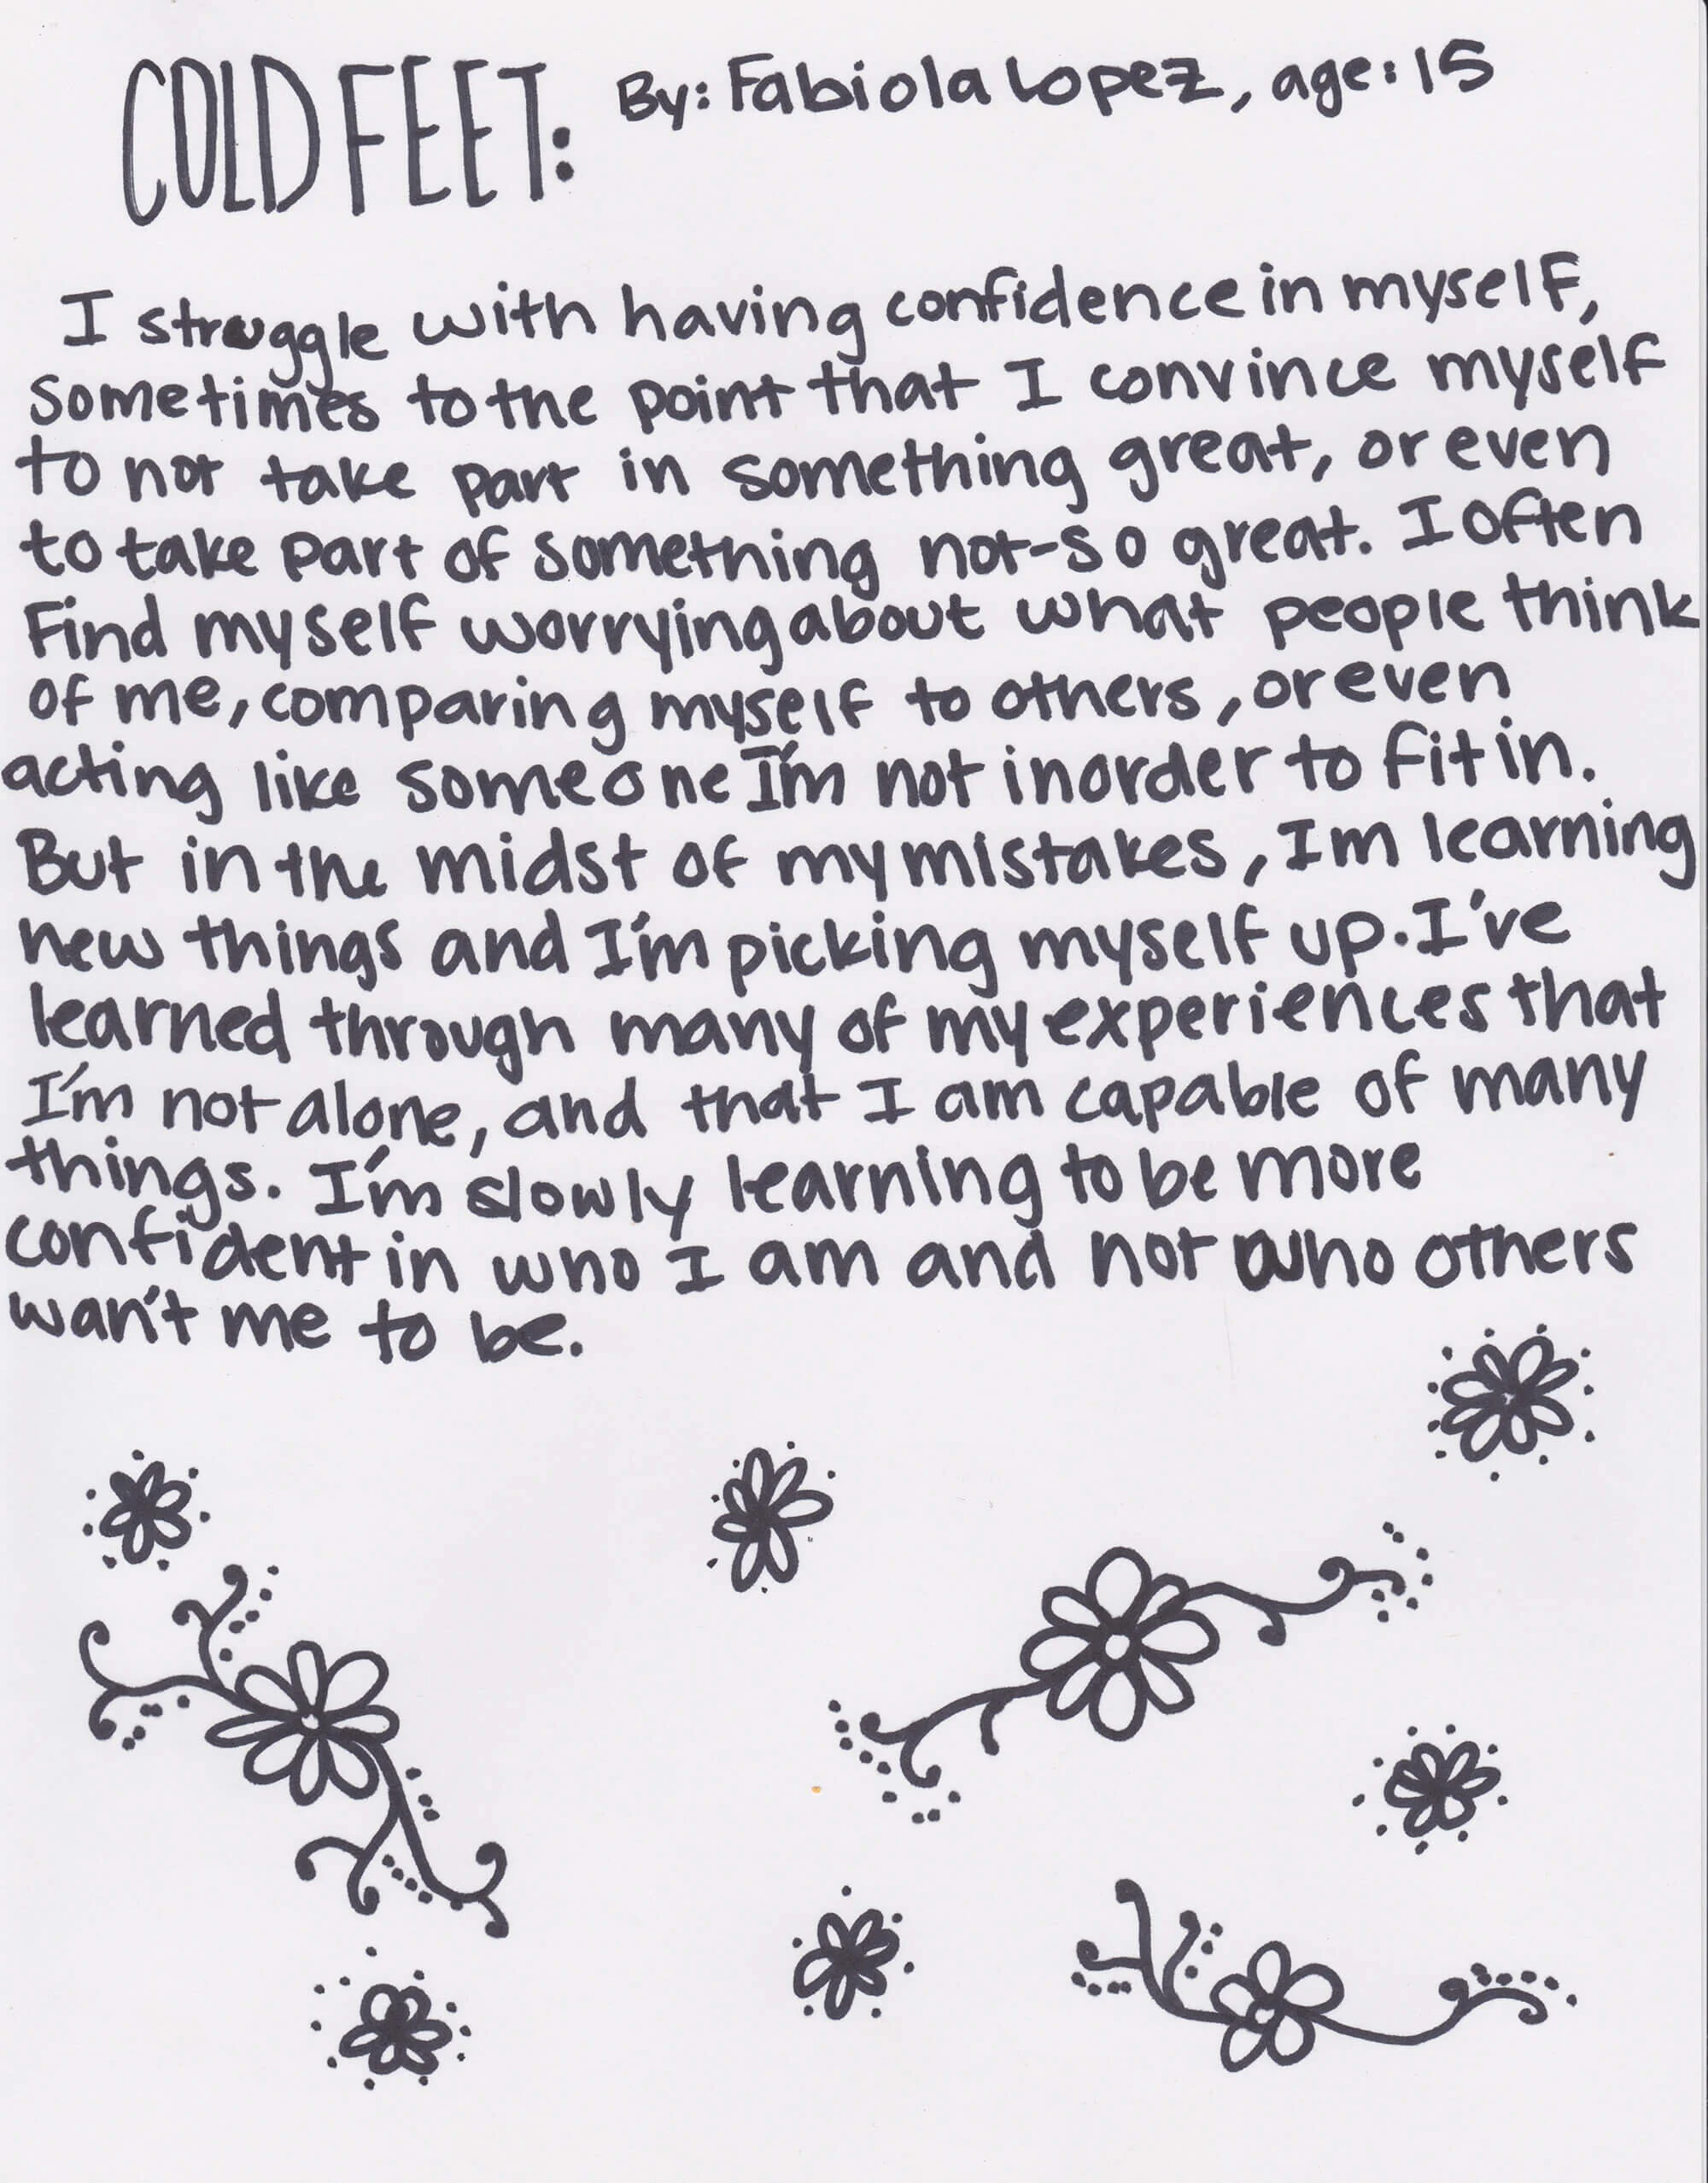 COLD FEET: By: Fabiola Lopez, age: 15
I struggle with having confidence in myself,
sometimes to the point that I convince myself
to not take part in something great, or even
to take part of something not-so great. I often
Find myself worrying about what people think
of me, comparing myself to others, or even
acting like someone I'm not inorder to fit in.
But in the midst of my mistakes, Im learning
new things and I'm picking myself up. I've
learned through many of my experiences that
I'm not alone, and that I am capable of many
things. I'm slowly learning to be more
confident in who I am and not who others
wan't me to be.